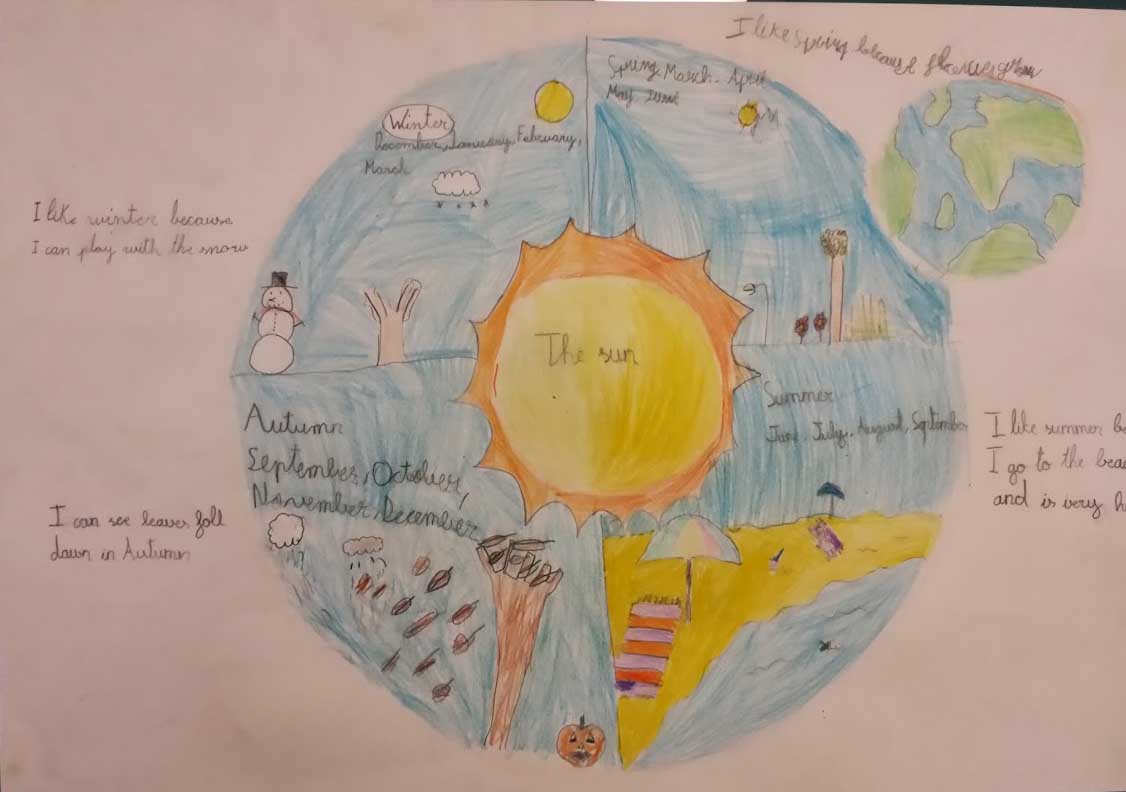 I like spring because flowers grow
Spring March - April
May June
Winter
December, January, February,
March
I like winter because
I can play with the snow
The sun
Summer
June, July, August, September
I like summer be
I go to the bea
and is very h
Autumn
September, October,
November, December
I can see leaves fall
down in Autumn